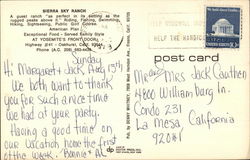 SIERRA SKY RANCH
A guest ranch "as perfect in its setting as the
rugged peaks above it." Riding, Fishing, Swimming,
Hiking, Sightseeing, Public Golf Course
American Plan
Exceptional Food - Served Family Style
AT YOSEMITE'S FRONT DOOR
Highway #41 - Oakhurst, Calif.
Phone: A.C. (209)
Sunday
Hi Margaret & Jack, Aug 15th
We both want to thank
you for such a nice time
we had at your party.
Having a good time on
our Vacation home the first
of the week. Bonnie & Al
HELP THE HANDICAPPED
post card
Mr and Mrs Jack Cauthen
4800 William burg ln.
Condo 231
La Mesa California
92041